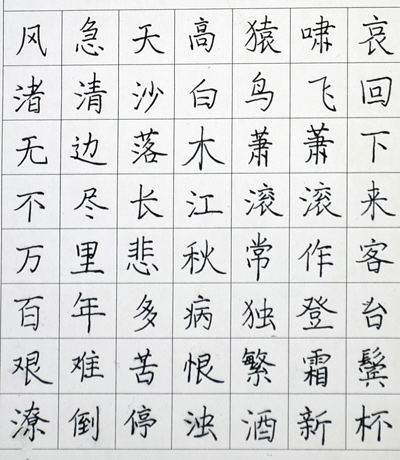 风急天高猿啸哀
渚清沙白鸟飞回
无边落木萧萧下
不尽长江滚滚来
万里悲秋常作客
百年多病独登台
艰难苦恨繁霜鬓
潦倒停浊酒新杯